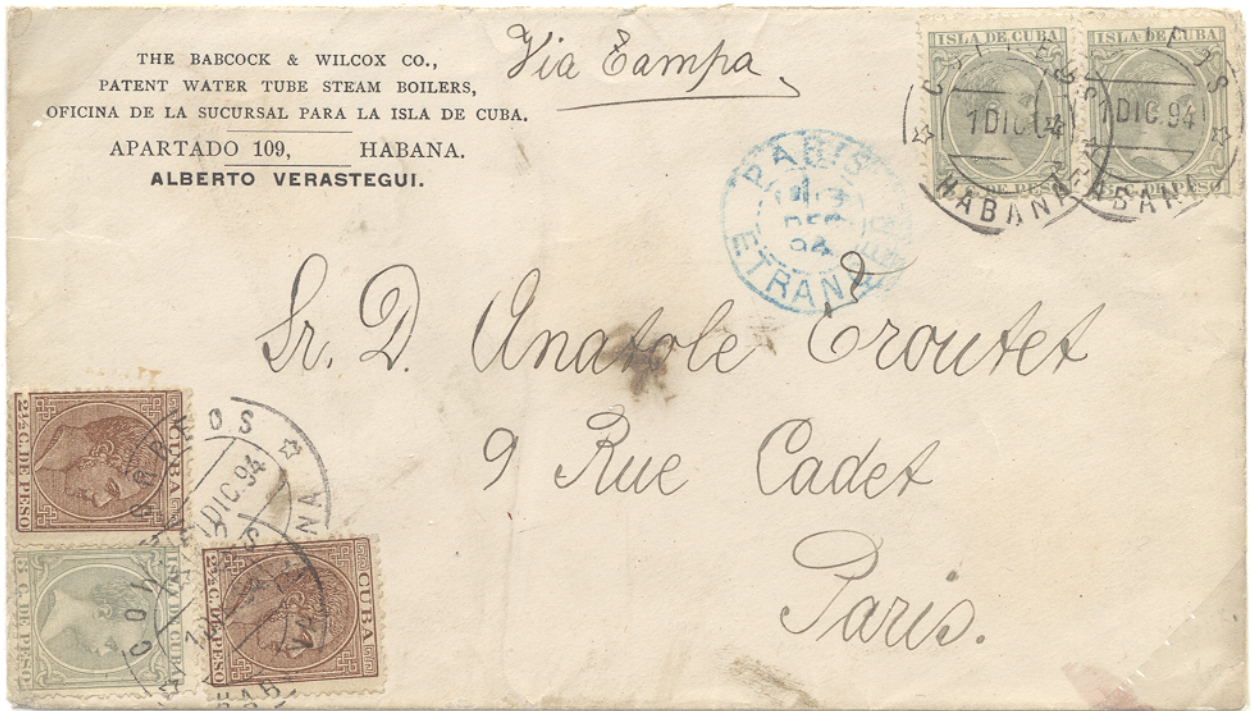 THE BABCOCK & WILCOX CO.,
PATENT WATER TUBE STEAM BOILERS,
OFICINA DE LA SUCURSAL PARA LA ISLA DE CUBA.
APARTADO 109, HABANA.
ALBERTO VERASTEGUI.
Via Tampa
ISLA DE CUBA
DE PESO
1 DIC 94
HABANA
ISLA DE CUBA
C. DE PESO
1 DIC. 94
HABANA
PARIS
DEC
94
ETRANG
Sr. D. Anatole Troutet
9 Rue Cadet
Paris.
CUBA
2½ C. DE PESO
1 DIC. 94
ISLA DE CUBA
5 C. DE PESO
CUBA
2½ C. DE PESO